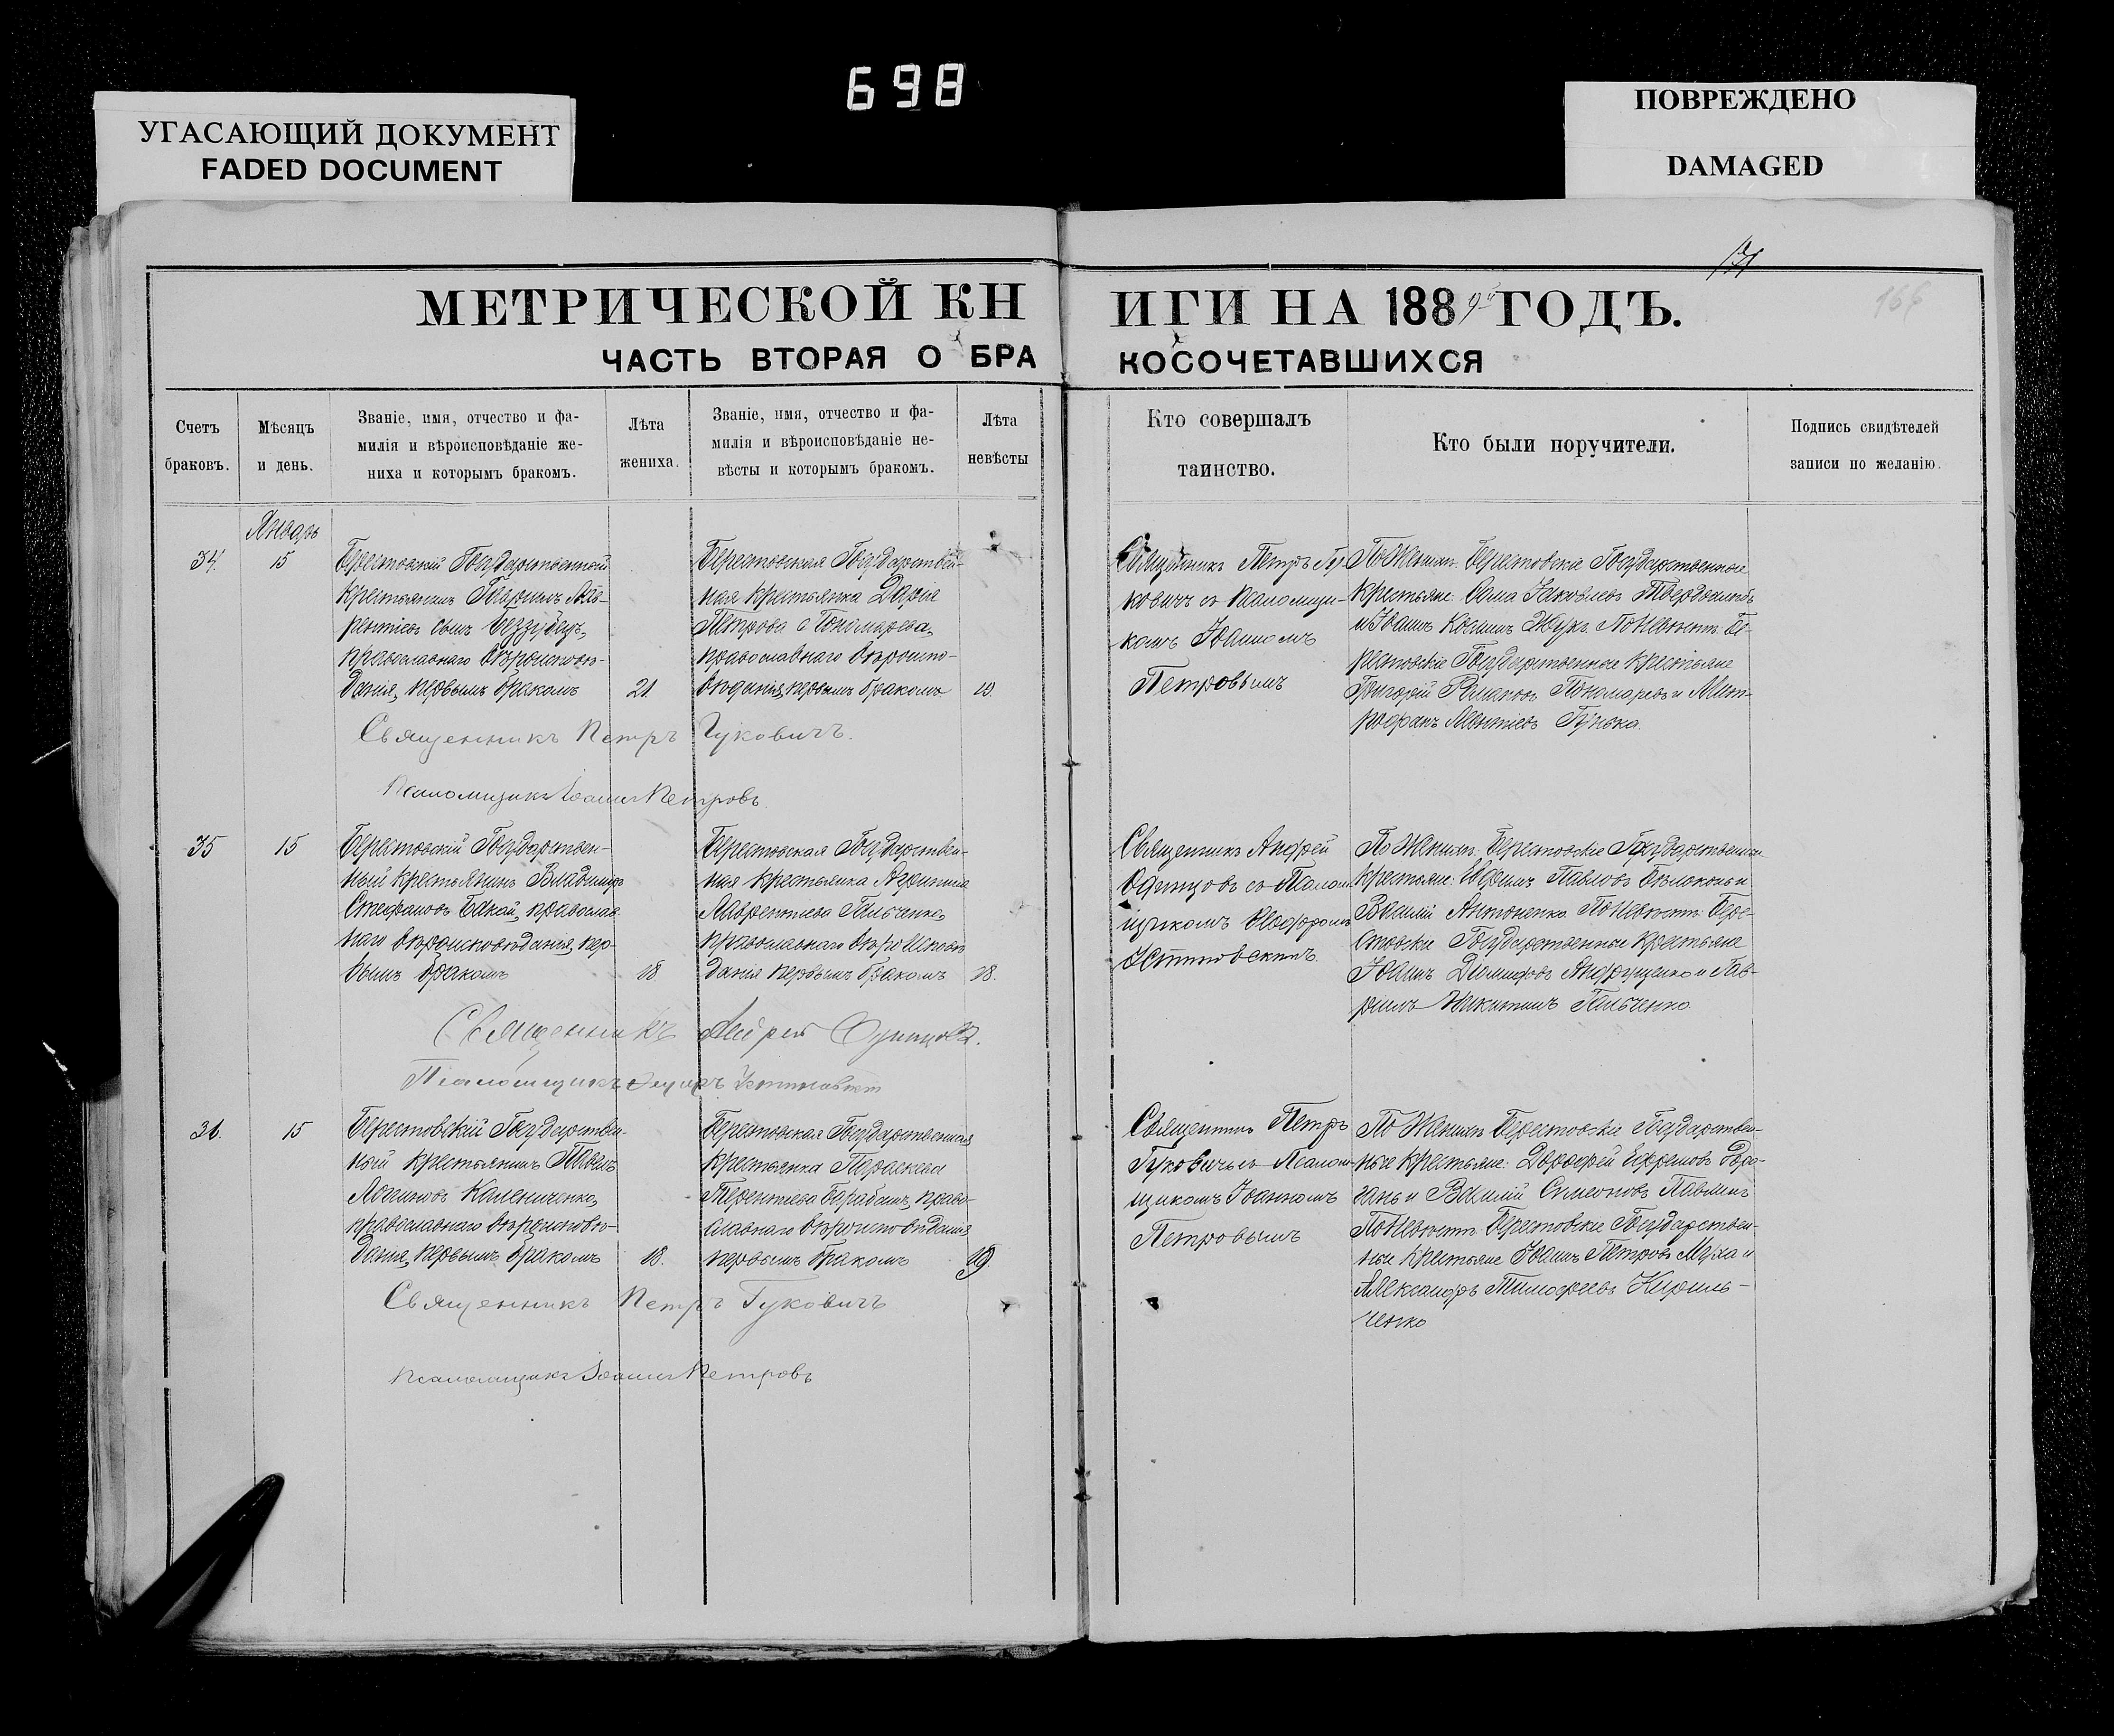 698
УГАСАЮЩИЙ ДОКУМЕНТ
FADED DOCUMENT
ПОВРЕЖДЕНО
DAMAGED
171
166
МЕТРИЧЕСКОЙ КНИГИ НА 1889й ГОДЪ.
ЧАСТЬ ВТОРАЯ О БРАКОСОЧЕТАВШИХСЯ
Счетъ
браковъ.
Мѣсяцъ
и день.
Званіе, имя, отчество и фа-
милія и вѣроисповѣданіе же-
ниха и которымъ бракомъ.
Лѣта
жениха.
Званіе, имя, отчество и фа-
милія и вѣроисповѣданіе не-
вѣсты и которымъ бракомъ.
Лѣта
невѣсты
Кто совершалъ
таинство.
Кто были поручители.
Подпись свидѣтелей
записи по желанію.
Январь
34.
15
Берестовскій Государственный
крестьянинъ
сынъ
православнаго вѣроисповѣ-
данія, первымъ бракомъ
21
Берестовская Государствен-
ная крестьянка Дарія
Петрова Пономарева,
православнаго вѣроиспо-
вѣданія, первымъ бракомъ
Священникъ Петръ Гу-
ковичъ съ псаломщи-
комъ Іоанномъ
Петровымъ
По Женихѣ: Берестовскіе Государственные
крестьяне: Яковлевъ
и Іоаннъ Жукъ. По Невѣстѣ: Бе-
рестовскіе Государственные крестьяне
Григорій Романовъ Пономаревъ и Мит-
рофанъ Гунька.
Священникъ Петръ Гуковичъ.
Псаломщикъ Іоаннъ Петровъ.
35
15
Берестовскій Государствен-
ный крестьянинъ Владиміръ
Стефановъ Бакай, православ-
наго вѣроисповѣданія, пер-
вымъ бракомъ
18
Берестовская Государствен-
ная крестьянка
Лаврентіева Гальченко,
православнаго вѣроисповѣ-
данія первымъ бракомъ
18.
Священникъ Андрей
Одинцовъ съ Псалом-
щикомъ
Устиновскимъ.
По Женихѣ: Берестовскіе Государственные
крестьяне: Павловъ Бѣлоконь и
Василій Антоненко. По Невѣстѣ: Бере-
стовскіе Государственные крестьяне
Іоаннъ Діомидовъ Андрущенко и Гав-
риилъ Никитинъ Гальченко
Священникъ Андрей Одинцовъ.
Псаломщикъ Устиновскій
36.
15
Берестовскій Государствен-
ный крестьянинъ Павелъ
Калениченко,
православнаго вѣроисповѣ-
данія, первымъ бракомъ
18.
Берестовская Государственная
крестьянка Параскева
Терентіева Барабашъ, право-
славнаго вѣроисповѣданія
первымъ бракомъ
19
Священникъ Петръ
Гуковичъ съ Псалом-
щикомъ Іоанномъ
Петровымъ
По Женихѣ: Берестовскіе Государствен-
ные крестьяне: Дорофей Ефремовъ
и Василій Симеоновъ
По Невѣстѣ: Берестовскіе Государствен-
ные крестьяне Іоаннъ Петровъ Муха и
Александръ Тимофеевъ Кириль-
ченко
Священникъ Петръ Гуковичъ
Псаломщикъ Іоаннъ Петровъ